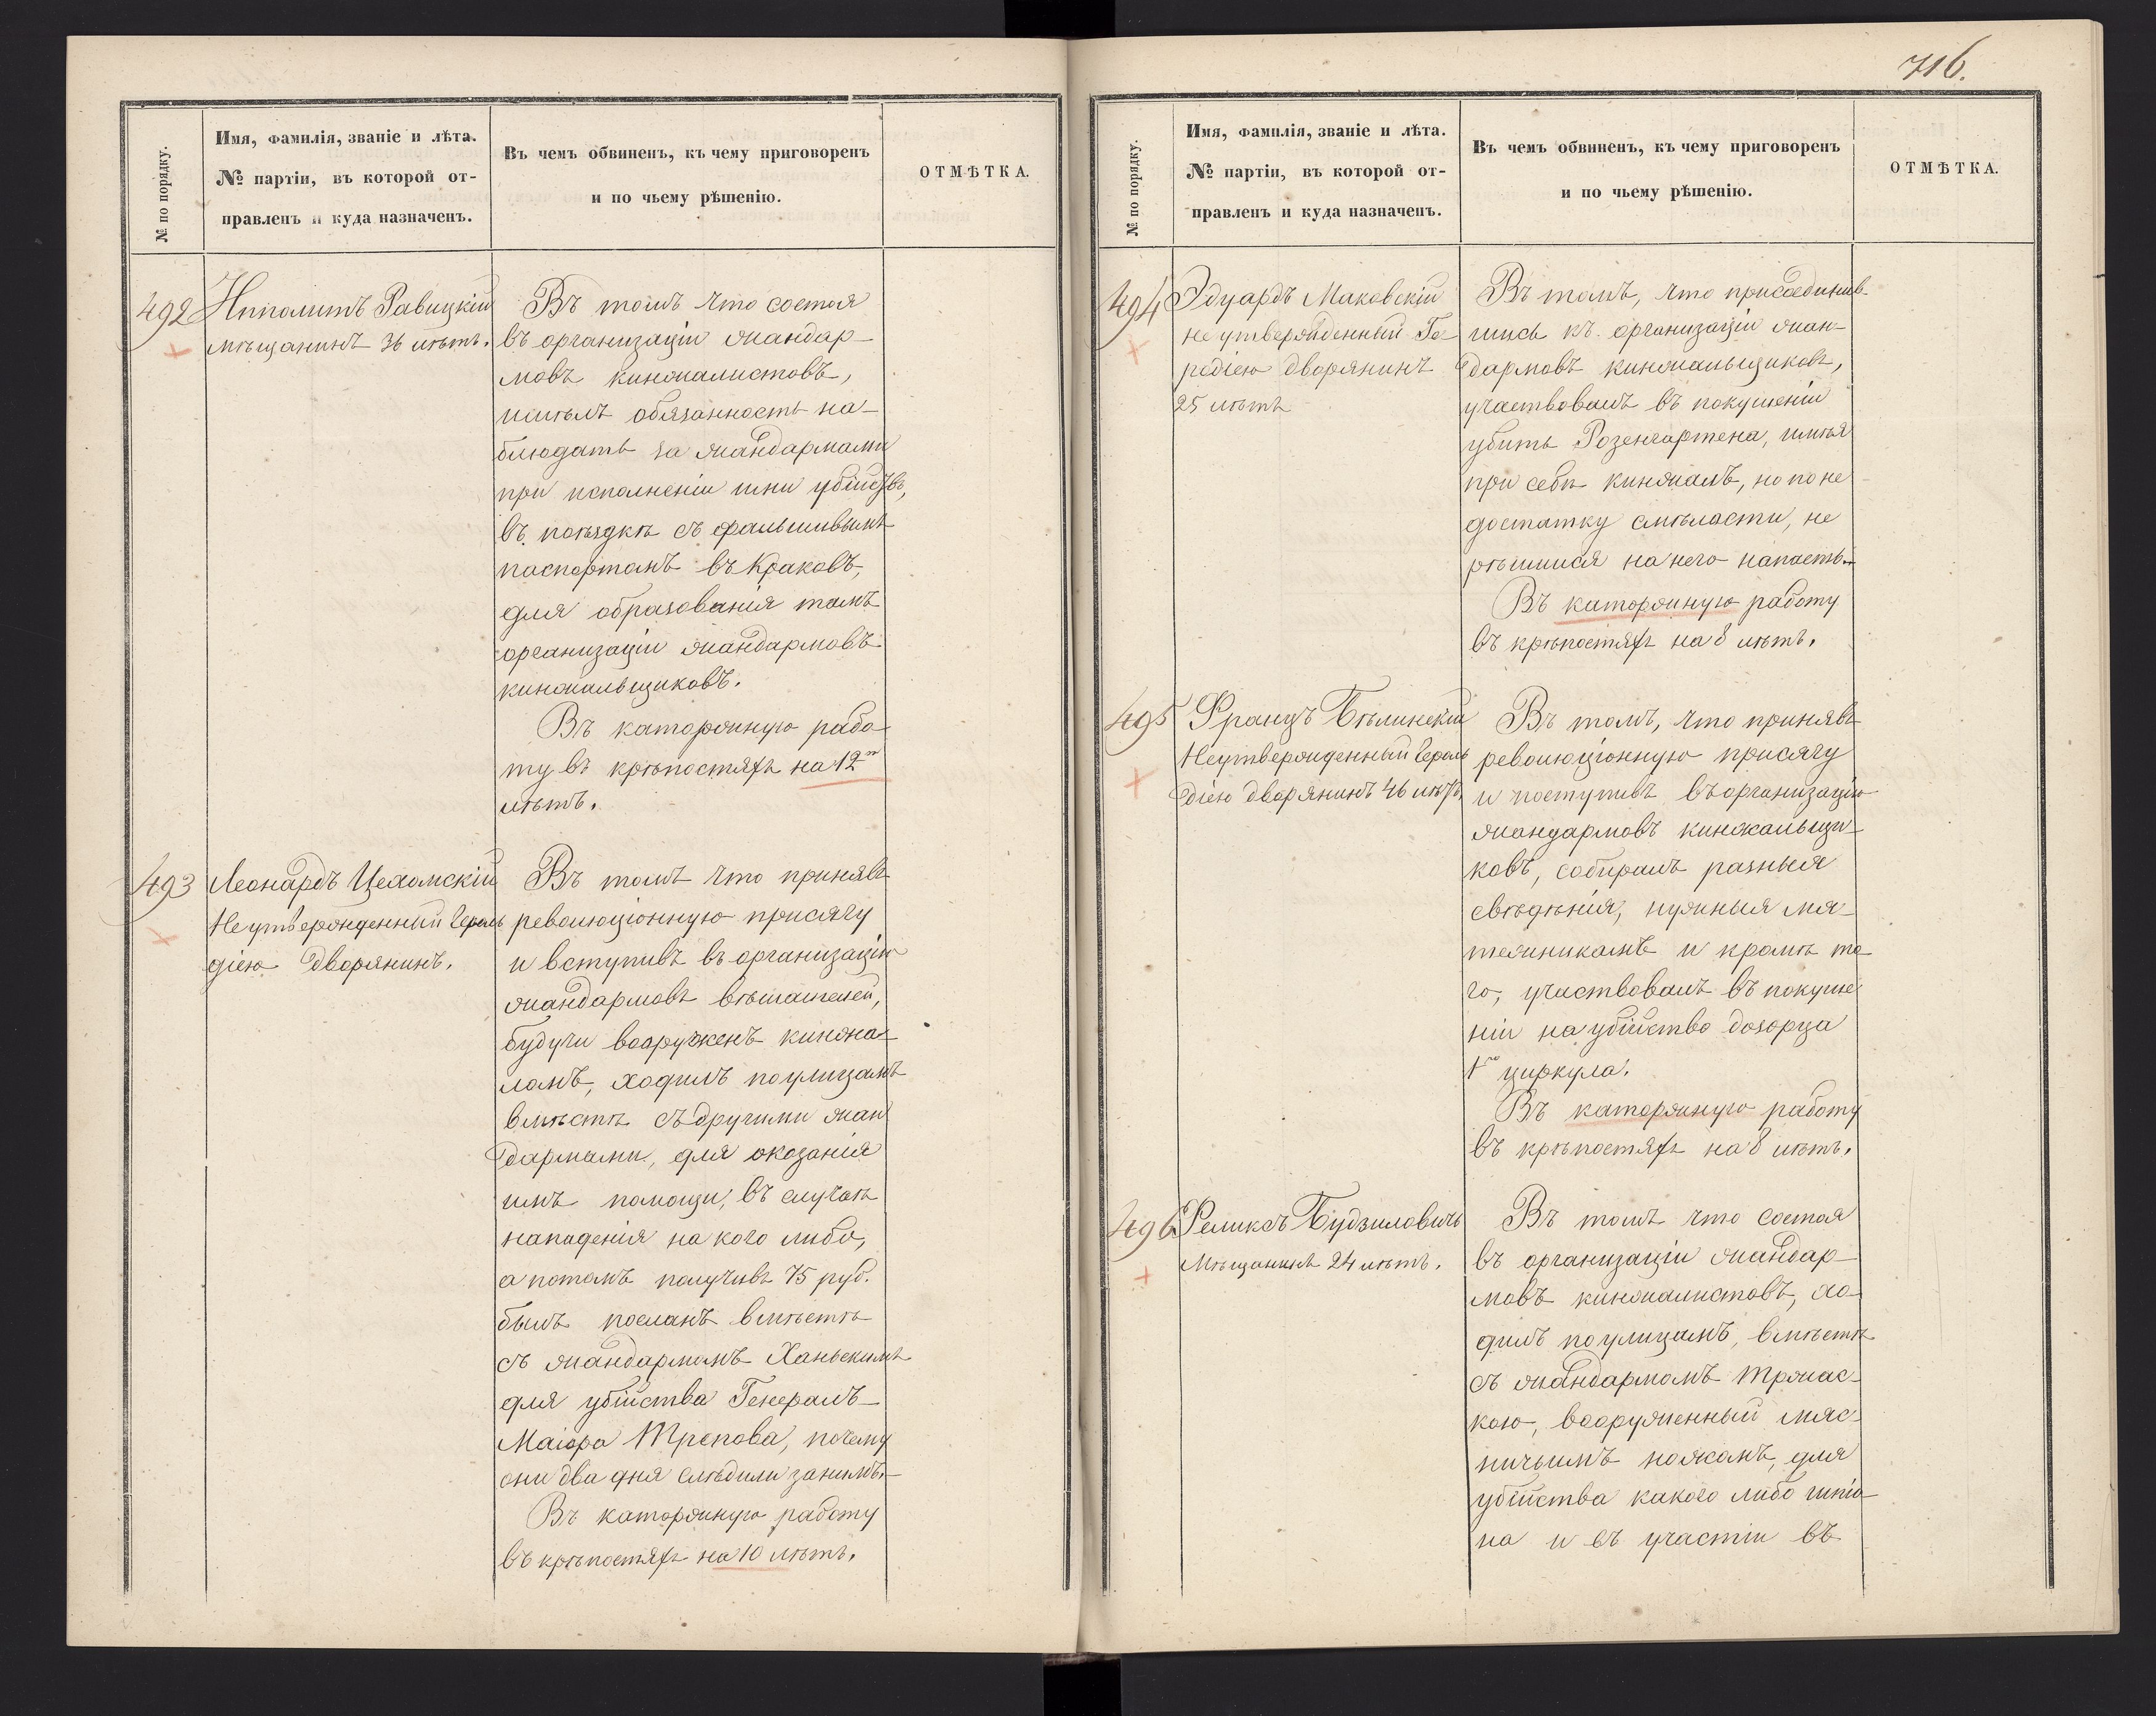 716.
№ по порядку.
Имя, фамилія, званіе и лѣта.
№ партіи, въ которой от-
правленъ и куда назначенъ.
Въ чемъ обвиненъ, къ чему приговоренъ
и по чьему рѣшенію.
ОТМѢТКА.
492
Ипполитъ Равицкій
мѣщанинъ 36 лѣтъ.
Въ томъ что состоя
въ организаціи жандар-
мовъ кинжалистовъ,
имѣлъ обязанность на-
блюдать за жандармами
при исполненіи ими убійствъ,
въ поѣздкѣ съ фальшивымъ
паспортомъ въ Краковъ,
для образованія тамъ
организаціи жандармовъ
кинжальщиковъ.
Въ каторжную рабо-
ту въ крѣпостяхъ на 12ть
лѣтъ.
493
Леонардъ Цехомскій
Неутвержденный Героль
діею дворянинъ.
Въ томъ что принявъ
революціонную присягу
и вступивъ въ организацію
жандармовъ вѣшателей,
будучи вооруженъ кинжа-
ломъ, ходилъ по улицамъ
вмѣстѣ съ другими жан
дармами, для оказанія
имъ помощи, въ случаѣ
нападенія на кого либо,
а потомъ получивъ 75 руб.
былъ посланъ вмѣстѣ
съ жандармомъ Ханьскимъ
для убійства Генералъ-
Маіора Трепова, почему
они два дня слѣдили за нимъ.-
Въ каторжную работу
въ крѣпостяхъ на 10 лѣтъ.
№ по порядку.
Имя, фамилія, званіе и лѣта.
№ партіи, въ которой от-
правленъ и куда назначенъ.
Въ чемъ обвиненъ, къ чему приговоренъ
и по чьему рѣшенію.
ОТМѢТКА.
494
Эдуардъ Маковскій
неутвержденный Ге-
редіею дворянинъ
25 лѣтъ
Въ томъ, что присоединив-
шись къ организаціи жан-
дармовъ кинжальщиковъ,
участвовалъ въ покушеніи
убить Розенгартена, имѣя
при себѣ кинжалъ, но по не
достатку смѣлости, не
рѣшился на него напасть.-
Въ каторжную работу
въ крѣпостяхъ на 8 лѣтъ.
495
Францъ Бѣлинскій
Неутвержденный Героль
діею дворянинъ 46 лѣтъ,
Въ томъ, что принявъ
революціонную присягу
и поступивъ въ организацію
жандармовъ кинжальщи-
ковъ, собиралъ разныя
свѣдѣнія, нужныя мя-
тежникамъ и кромѣ то
го, участвовалъ въ покуше
ніи на убійство дозорца
1го циркула.
Въ каторжную работу
въ крѣпостяхъ на 8 лѣтъ.
496
Феликсъ Будзиловичъ
Мѣщанинъ 24 лѣтъ.
Въ томъ что состоя
въ организаціи жандар-
мовъ кинжалистовъ, хо-
дилъ по улицамъ, вмѣстѣ
съ жандармомъ Тржас-
кою, вооруженный мяс-
ничьимъ ножомъ, для
убійства какого либо шпіо-
на и въ участіи въ